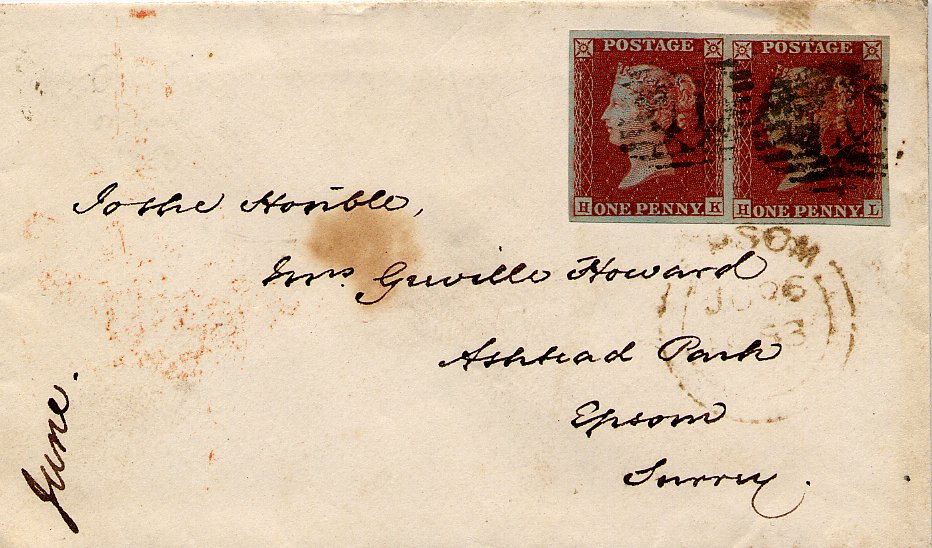 POSTAGE POSTAGE
H ONE PENNY. K H ONE PENNY. L
PSOM
JU 26
53
To the Honble,
Mrs. Greville Howard
Ashtead Park
Epsom
Surrey.
June.